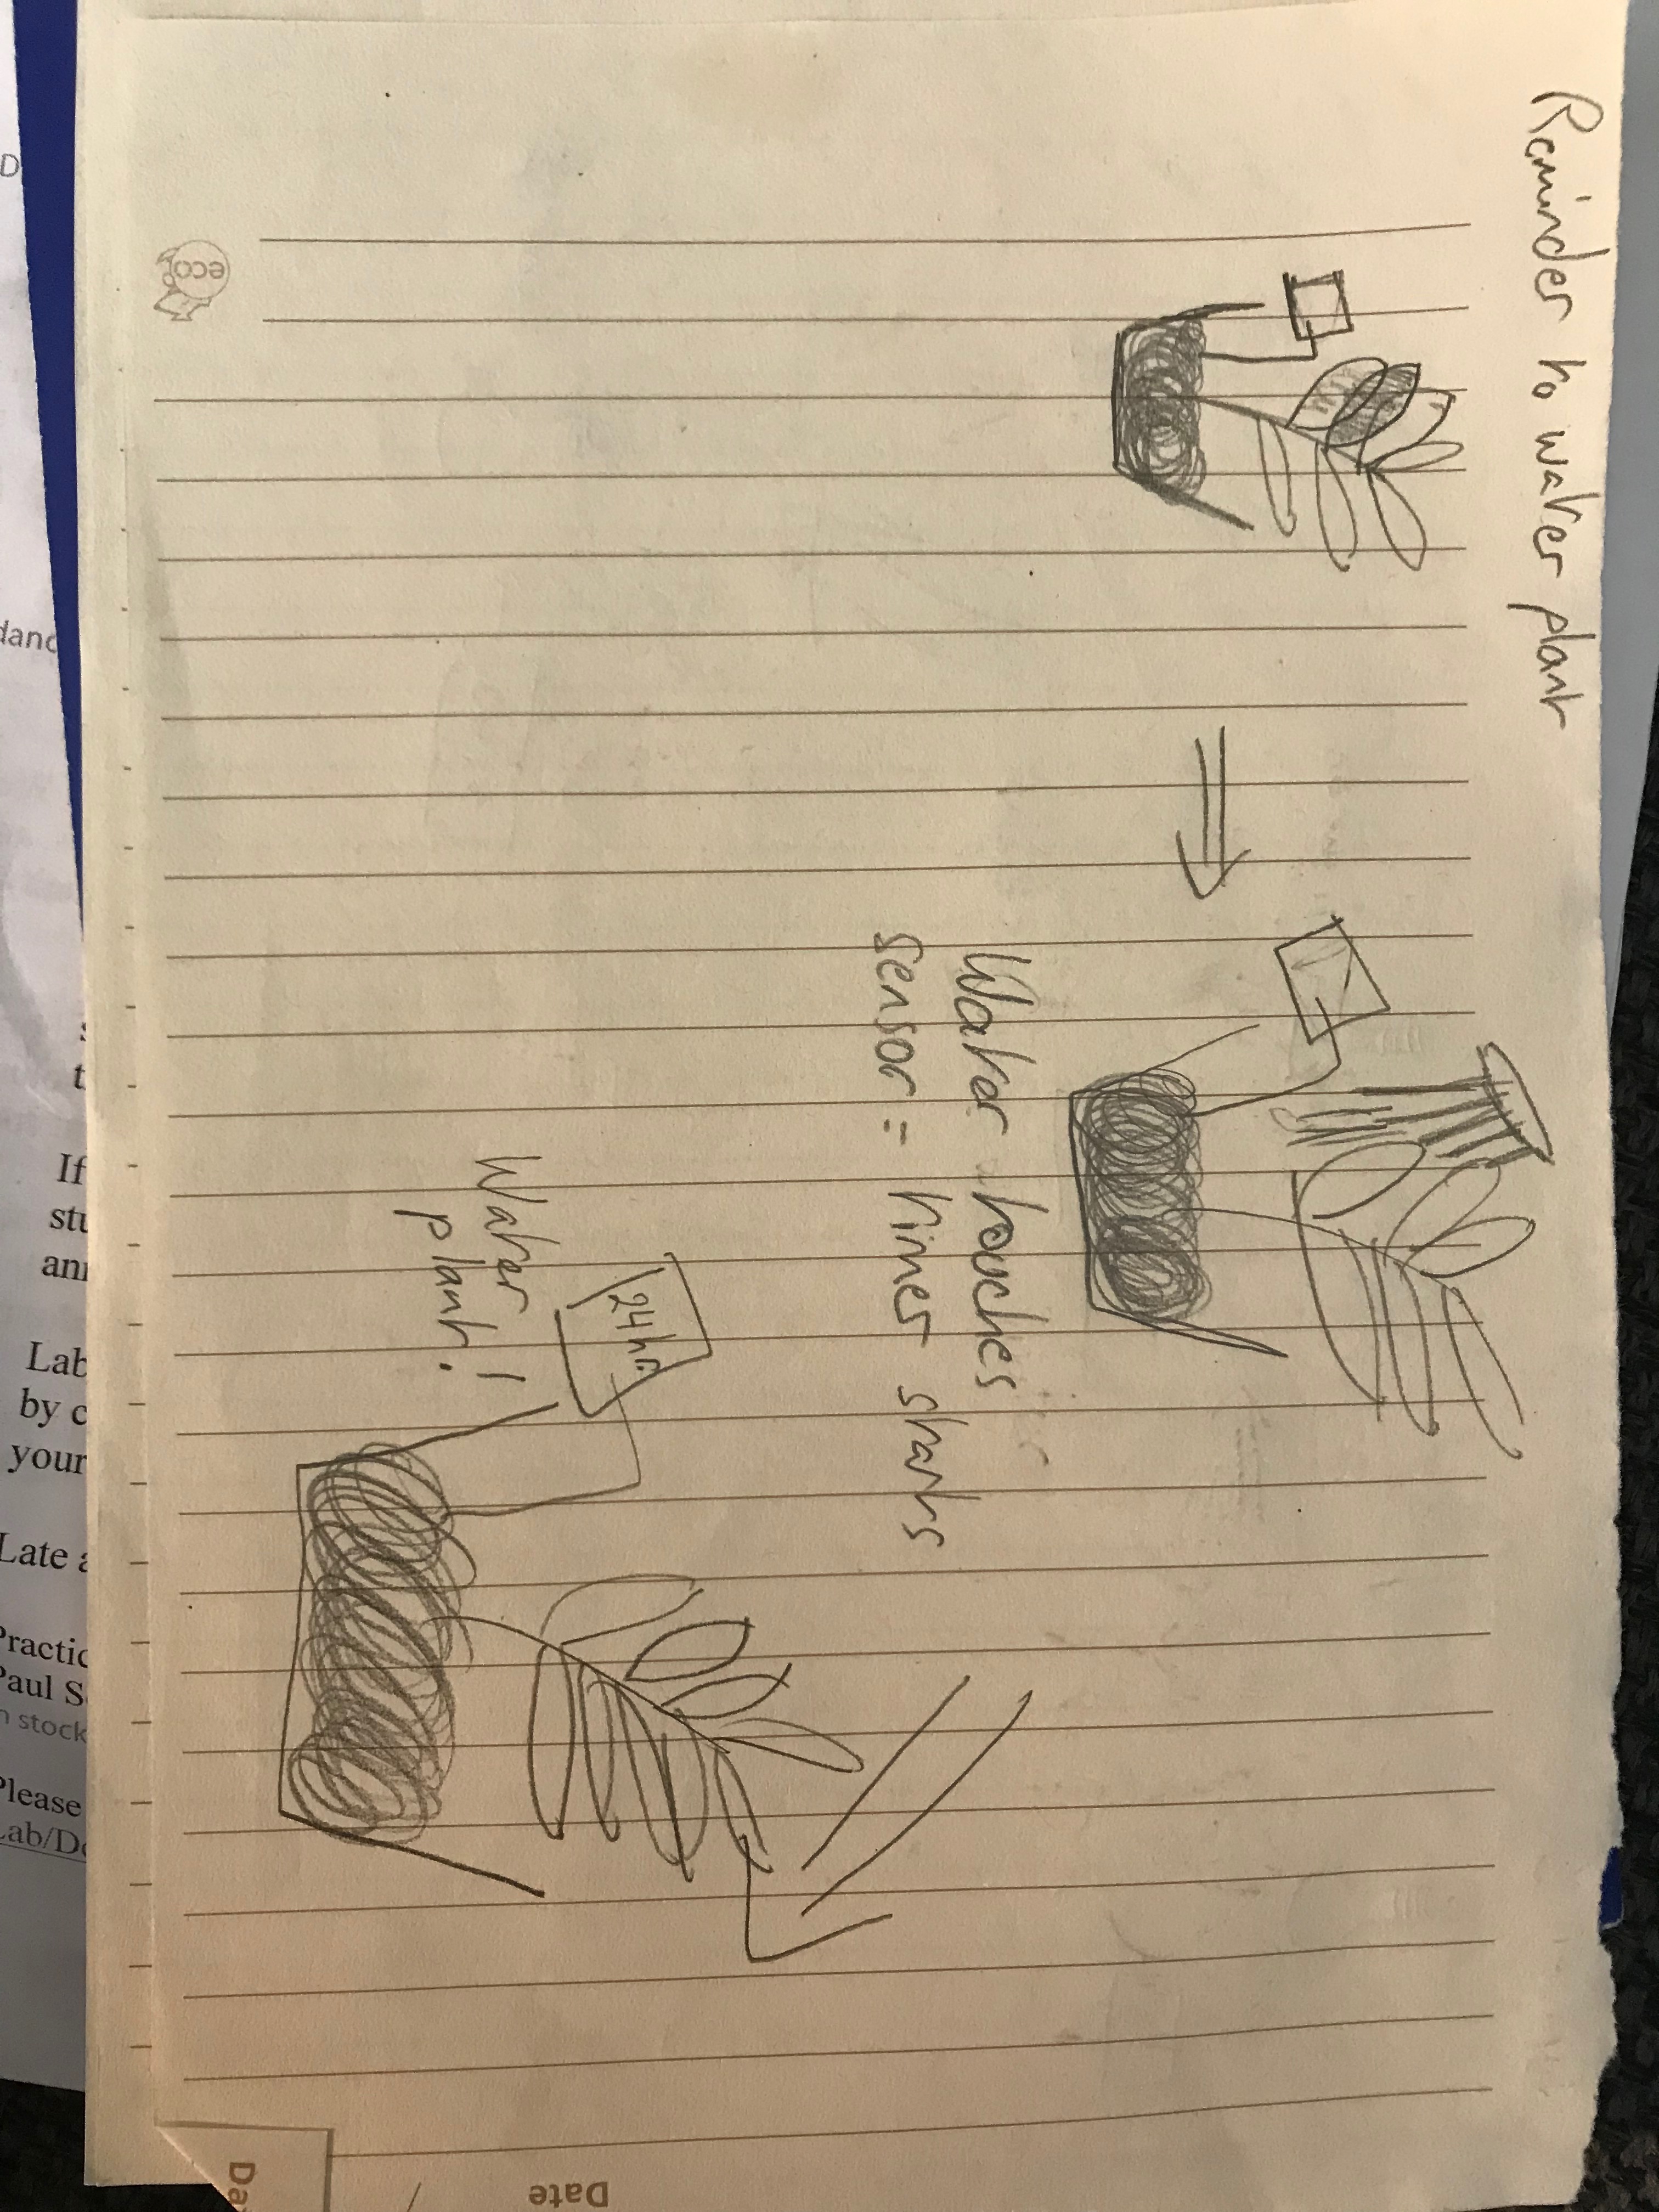 Reminder to water plant
Water touches
sensor = timer starts
24hr
Water
plant!
eco
Date
Da
D
danc
s
t
If
stu
ann
Lab
by c
your
Late a
Practic
Paul S
n stock
Please
Lab/De